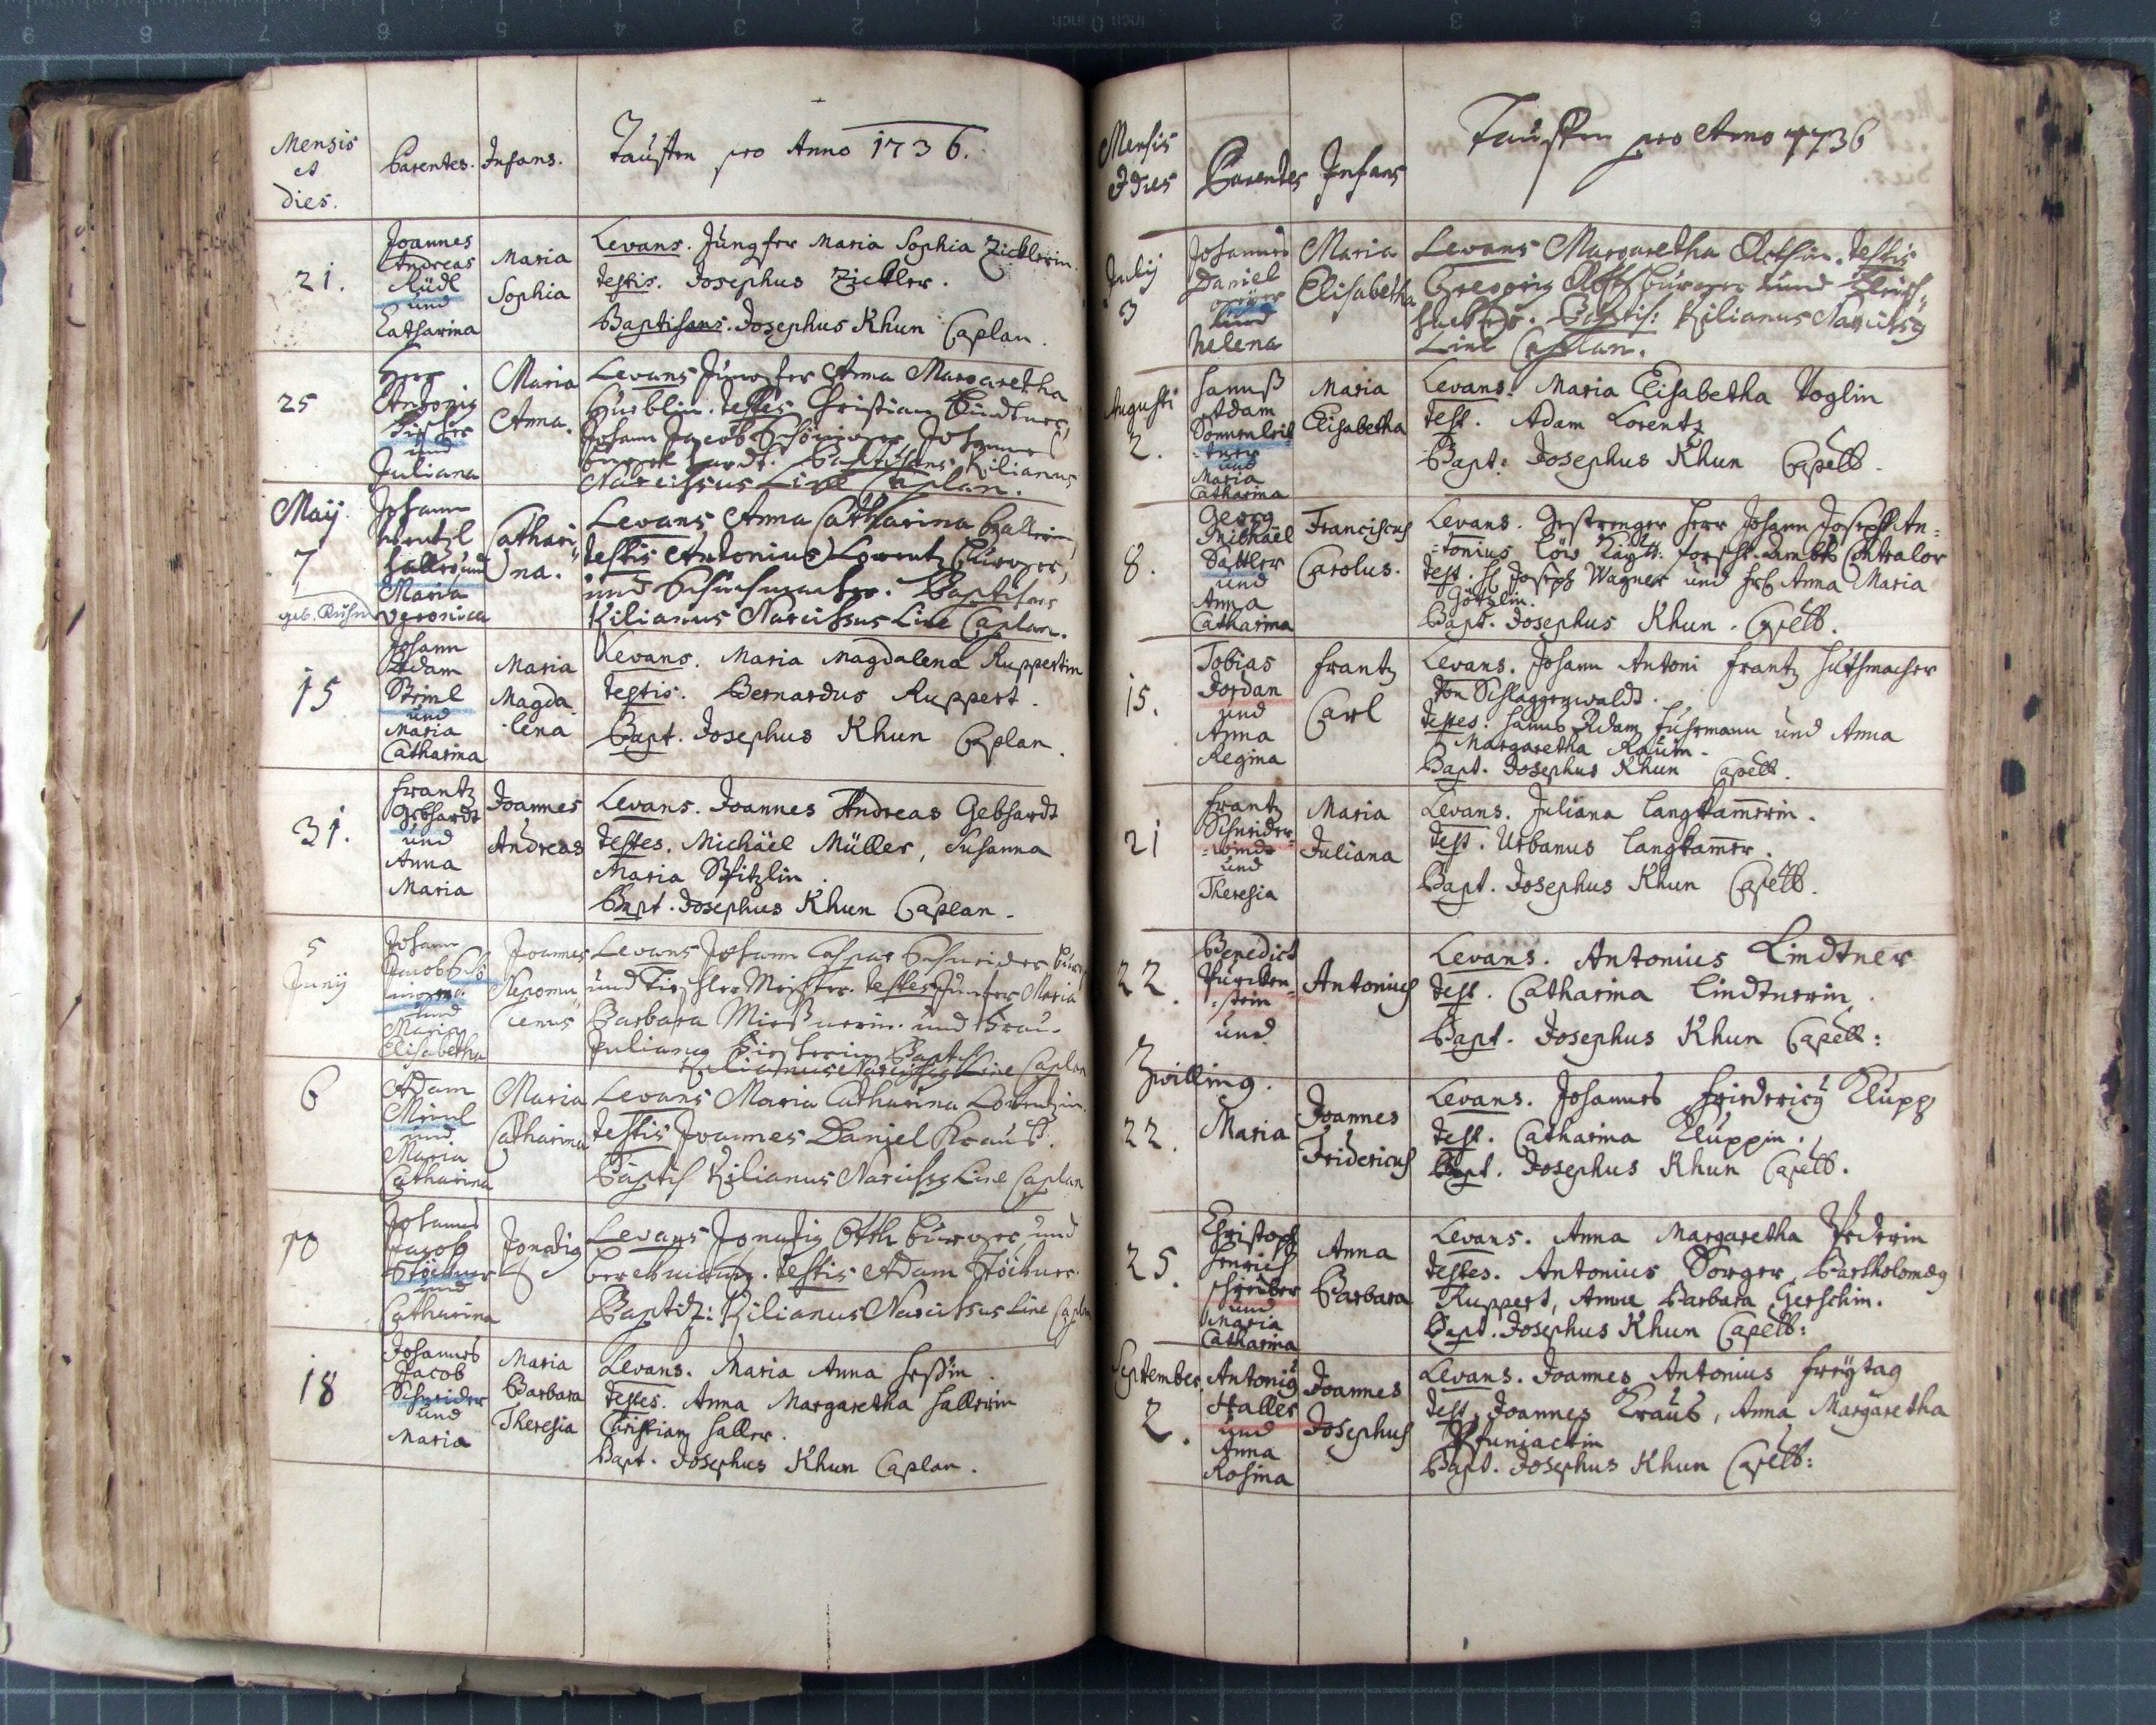 Mensis
et
dies.
Parentes.
Infans.
Tauffen pro Anno 1736.
21.
Joannes
Andreas
Rüdl
und
Catharina
Maria
Sophia
Levans. Jungfer Maria Sophia Zicklerin.
testis. Josephus Zickler.
Baptisans. Josephus Khun Caplan.
25
Herr
Antonig
Fischer
und
Juliana
Maria
Anna.
Levans Jungfer Anna Margaretha
testes Christian
Johann Jacob
Baptisans Kilianus
Narcissus Line Caplan.
Maÿ
7
geb. Kuhn
Johann
Haller und
Maria
Veronica
Cathari
na.
Levans Anna Catharina
testis Antonius Lorentz Burger,
und Schuhmacher. Baptisans
Kilianus Narcissus Line Caplan.
15
Johann
Adam
und
Maria
Catharina
Maria
Magda
lena
Levans. Maria Magdalena Ruppertin
testis. Bernardus Ruppert.
Bapt. Josephus Khun Caplan.
31.
Frantz
Gebhardt
und
Anna
Maria
Joannes
Andreas
Levans. Joannes Andreas Gebhardt
testes. Michäel Müller, Susanna
Maria
Bapt. Josephus Khun Caplan.
5
Junÿ
Johann
Jacob
und
Maria
Elisabetha
Joannes
Nepomu
cenus
Levans Johann Caspar Schneider
und Tischler Meister. testes Jungfer Maria
Barbara und Frau
Juliana
Line Caplan
6
Adam
Meinl
und
Maria
Catharina
Maria
Catharina
Levans Maria Catharina Lorentzin.
testis Joannes Daniel Krauß.
Baptis Kilianus Narcissg Line Caplan
10
Johannes
Jacob
Stöckner
und
Catharina
Jgnatig
Levans Jgnatig Otth Burger und
testis Adam Stöckner.
Baptiz: Kilianus Narcissus Line Caplan
18
Johannes
Jacob
Schneider
und
Maria
Maria
Barbara
Theresia
Levans. Maria Anna Heßin.
testes. Anna Margaretha Hallerin
Christian Haller.
Bapt. Josephus Khun Caplan.
Mensis
et dies
Parentes
Infans
Tauffen pro Anno 1736
Julij
3
Johannes
Daniel
und
Helena
Maria
Elisabetha
Levans Margaretha testis
Gregorig Burger und
Baptis: Kilianus Narcissg
Line Caplan.
Augusti
2.
Hannß
Adam
Sonnenleit=
=tner
und
Maria
Catharina
Maria
Elisabetha
Levans. Maria Elisabetha Voglin
test. Adam Lorentz
Bapt. Josephus Khun Capell.
8.
Georg
Michäel
Sattler
und
Anna
Catharina
Franciscus
Carolus.
Levans. Gestrenger Herr Johann Joseph An=
=tonius Löw Kaÿll: forscht Ambts Contralor
test: H. Joseph Wagner und Anna Maria
Götzlin.
Bapt. Josephus Khun. Capell.
15.
Tobias
Jordan
und
Anna
Regina
Frantz
Carl
Levans. Johann Antoni Frantz Huthmacher
von Schlaggenwaldt.
testes: Hanns Adam Fuhrmann und Anna
Margaretha
Bapt. Josephus Khun Capell.
21
Frantz
Schneider=
=winds
und
Theresia
Maria
Juliana
Levans. Juliana Langkamerin.
test. Urbanus Langkamer.
Bapt. Josephus Khun Capell.
22.
Benedict
=stein
und
Antonius
Levans. Antonius Lindtner
test. Catharina Lindtnerin.
Bapt. Josephus Khun Capell:
Zwilling.
22.
Maria
Joannes
Fridericus
Levans. Johannes Friderici Klupp
test. Catharina Kluppin.
Bapt. Josephus Khun Capell.
25.
Christoph
Henrich
Schreiber
und
Maria
Catharina
Anna
Barbara
Levans. Anna Margaretha
testes. Antonius Sorger, Bartholomæg
Ruppert, Anna Barbara Gerschin.
Bapt. Josephus Khun Capell:
September
2.
Antonig
Haller
und
Anna
Rosina
Joannes
Josephus
Levans. Joannes Antonius Freÿtag
test, Joannes Krauß, Anna Margaretha
Bapt. Josephus Khun Capell: